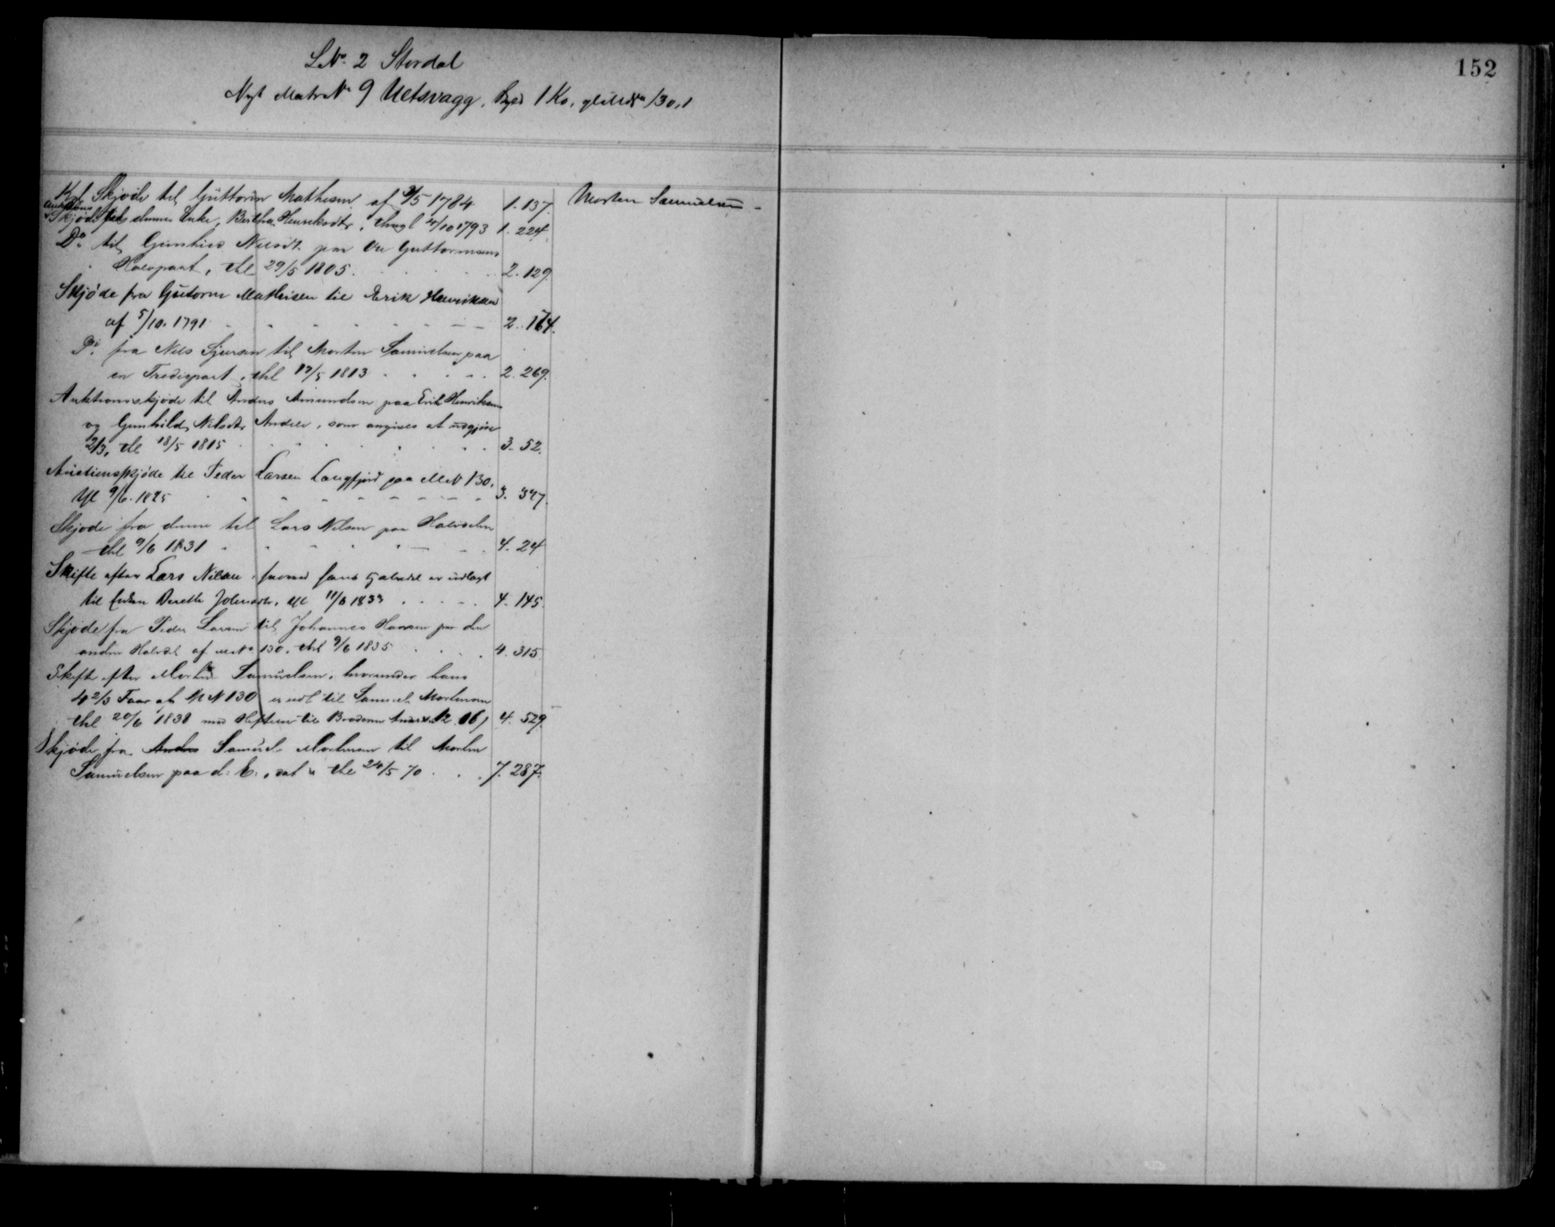 152
LNo. 2 Stordal
Nyt Matr No 9 Uetsvagg, 1 Ko, gl M No 130,1
Kgl Skjøde til Guttorm Mathisen af 3/5 1784 1. 137. Morten Samuelsen
Auktions Skjøde denne Enke, Bertha Henriksdtr, 4/10 1793 1. 224
Do til Nilsdtr paa Guttormsens
Halvpart, thl 29/5 1805. 2. 129.
Skjøde fra Guttorm Mathisen til Erik Henriksen
af 5/10. 1791 2. 164.
Do. fra Nils Sjursen til Morten Samuelsen paa
en Trediepart, thl 12/5 1813 2. 269.
Auktionsskjøde til Anders Amundsen paa Erik Henriksens
og Gunhild Nilsdtr Andele, som angives at udgjøre
2/3, thl 13/5 1815 3. 52.
Auctionsskjøde til Peder Larsen Langfjord paa MN 130.
thl 9/6. 1825 3. 347.
Skjøde fra denne til Lars Nilsen paa Halvdelen
thl 9/6 1831 4. 24
Skifte efter Lars Nilsen, hvorved hans Halvdel er udlagt
til Enken Berethe, thl 11/6 1833 4. 145.
Skjøde fra Peder Larsen til Johannes Hansen paa den
anden Halvdel af MNo 130. thl 9/6 1835 4. 315.
Skifte efter Morten Samuelsen, hvorunder hans
4 2/3 Faar af MN 130 er udl til Samuel Mortensen
thl 20/6 1838 med Heftelse til Broderen 4. 529
Skjøde fra Anders Samuel Mortensen til Morten
Samuelsen paa d. E., dat & thl 24/5 70 7. 287.